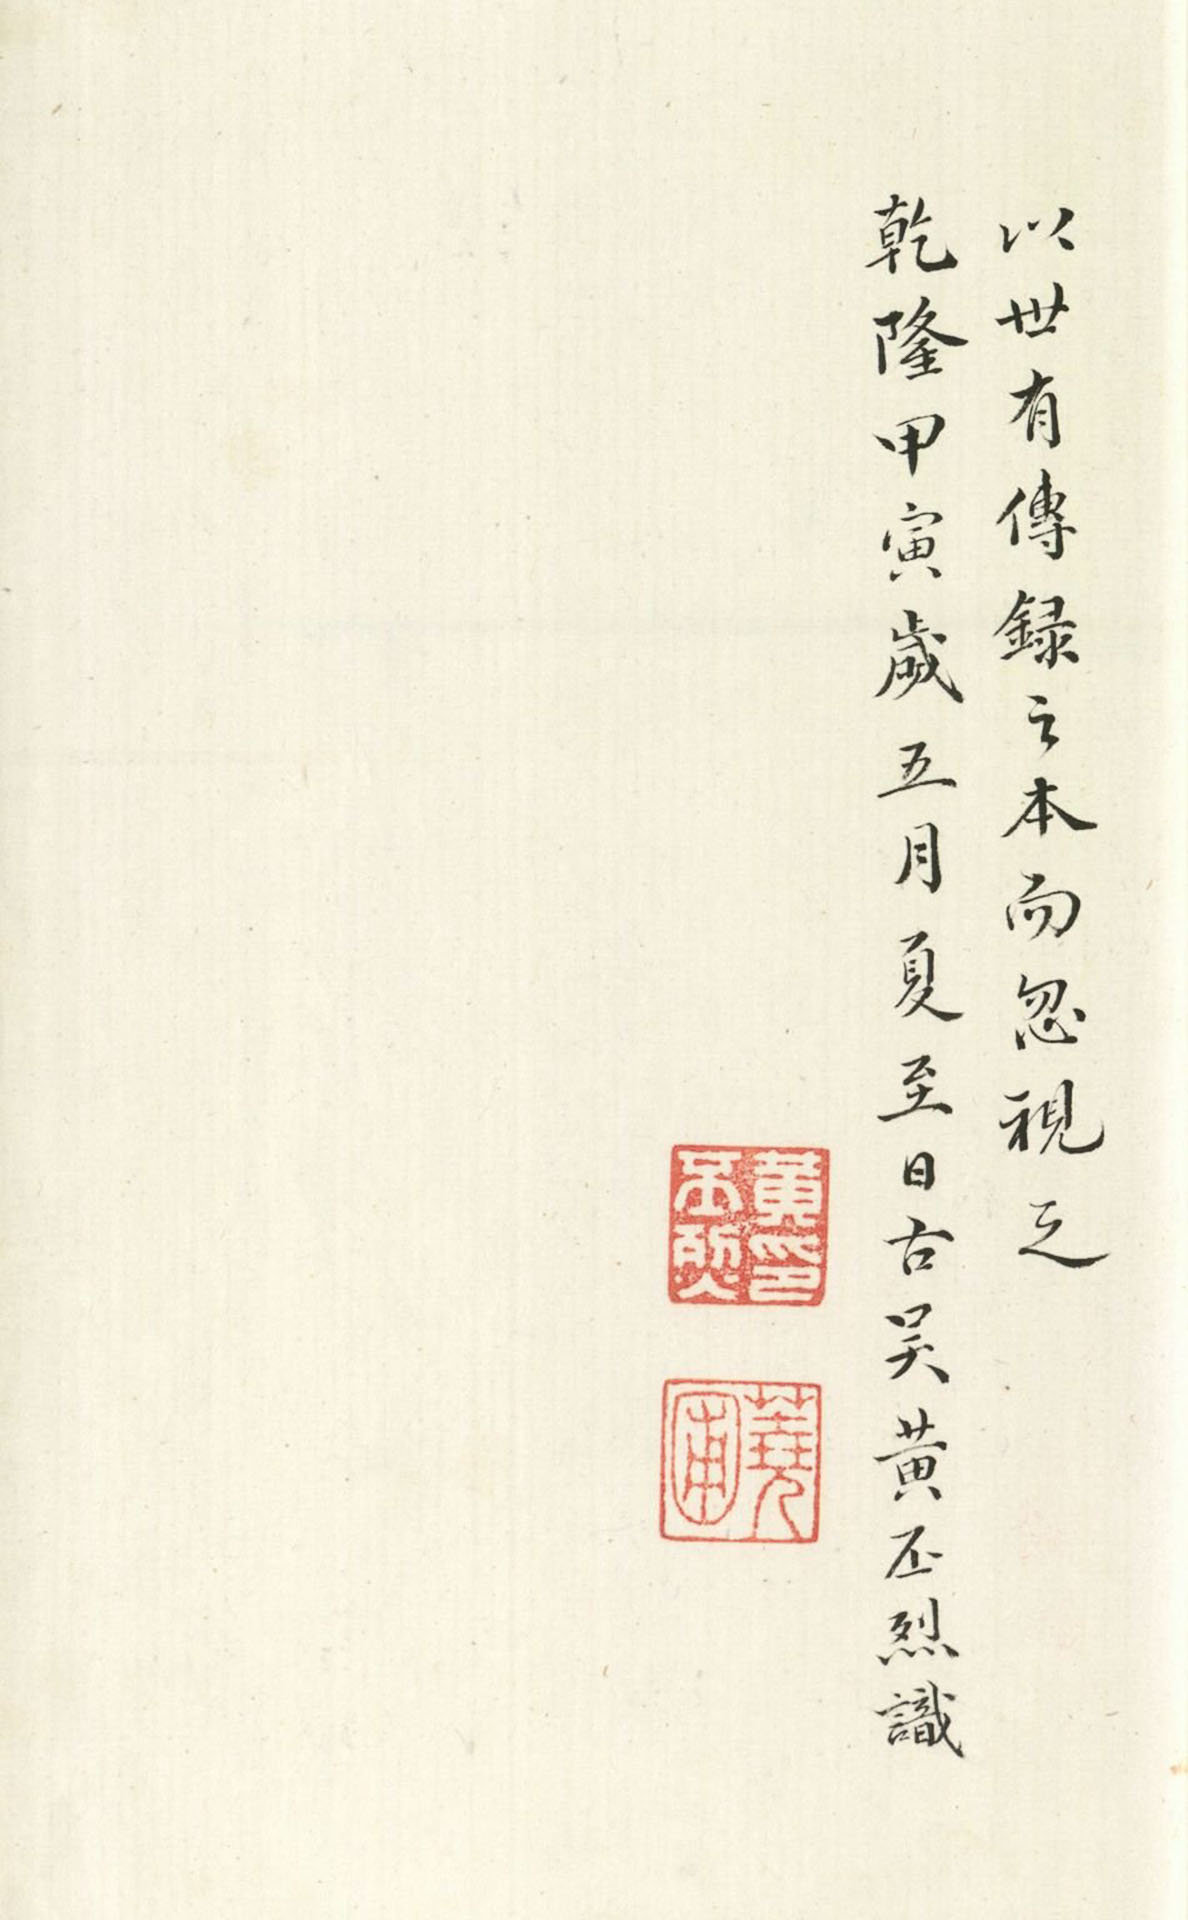 以世有傳録之本而忽視之
乾隆甲寅歲五月夏至日古吴黄丕烈識
黄印丕烈
蕘圃